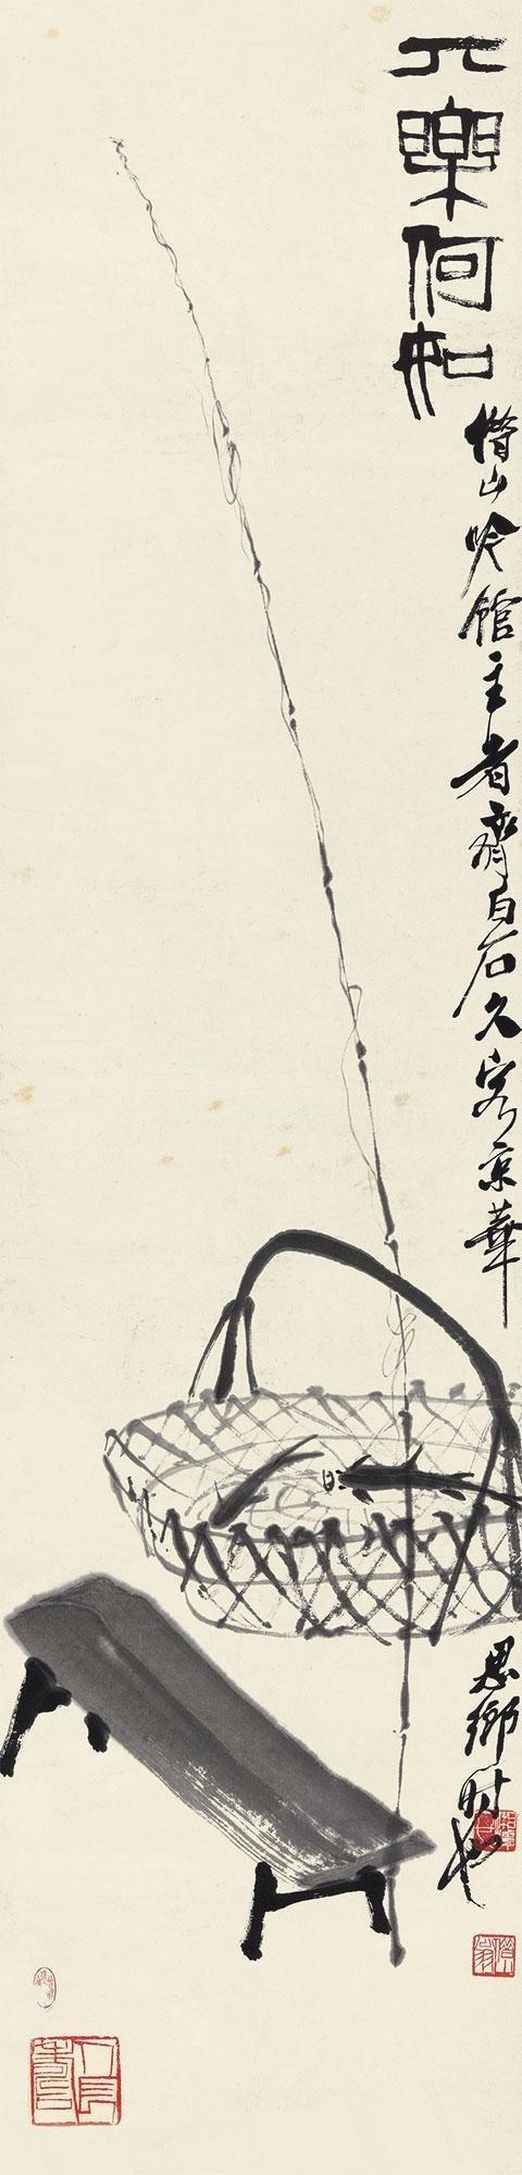 丌樂何如
借山吟館主者齊白石久客京華
思鄉時也